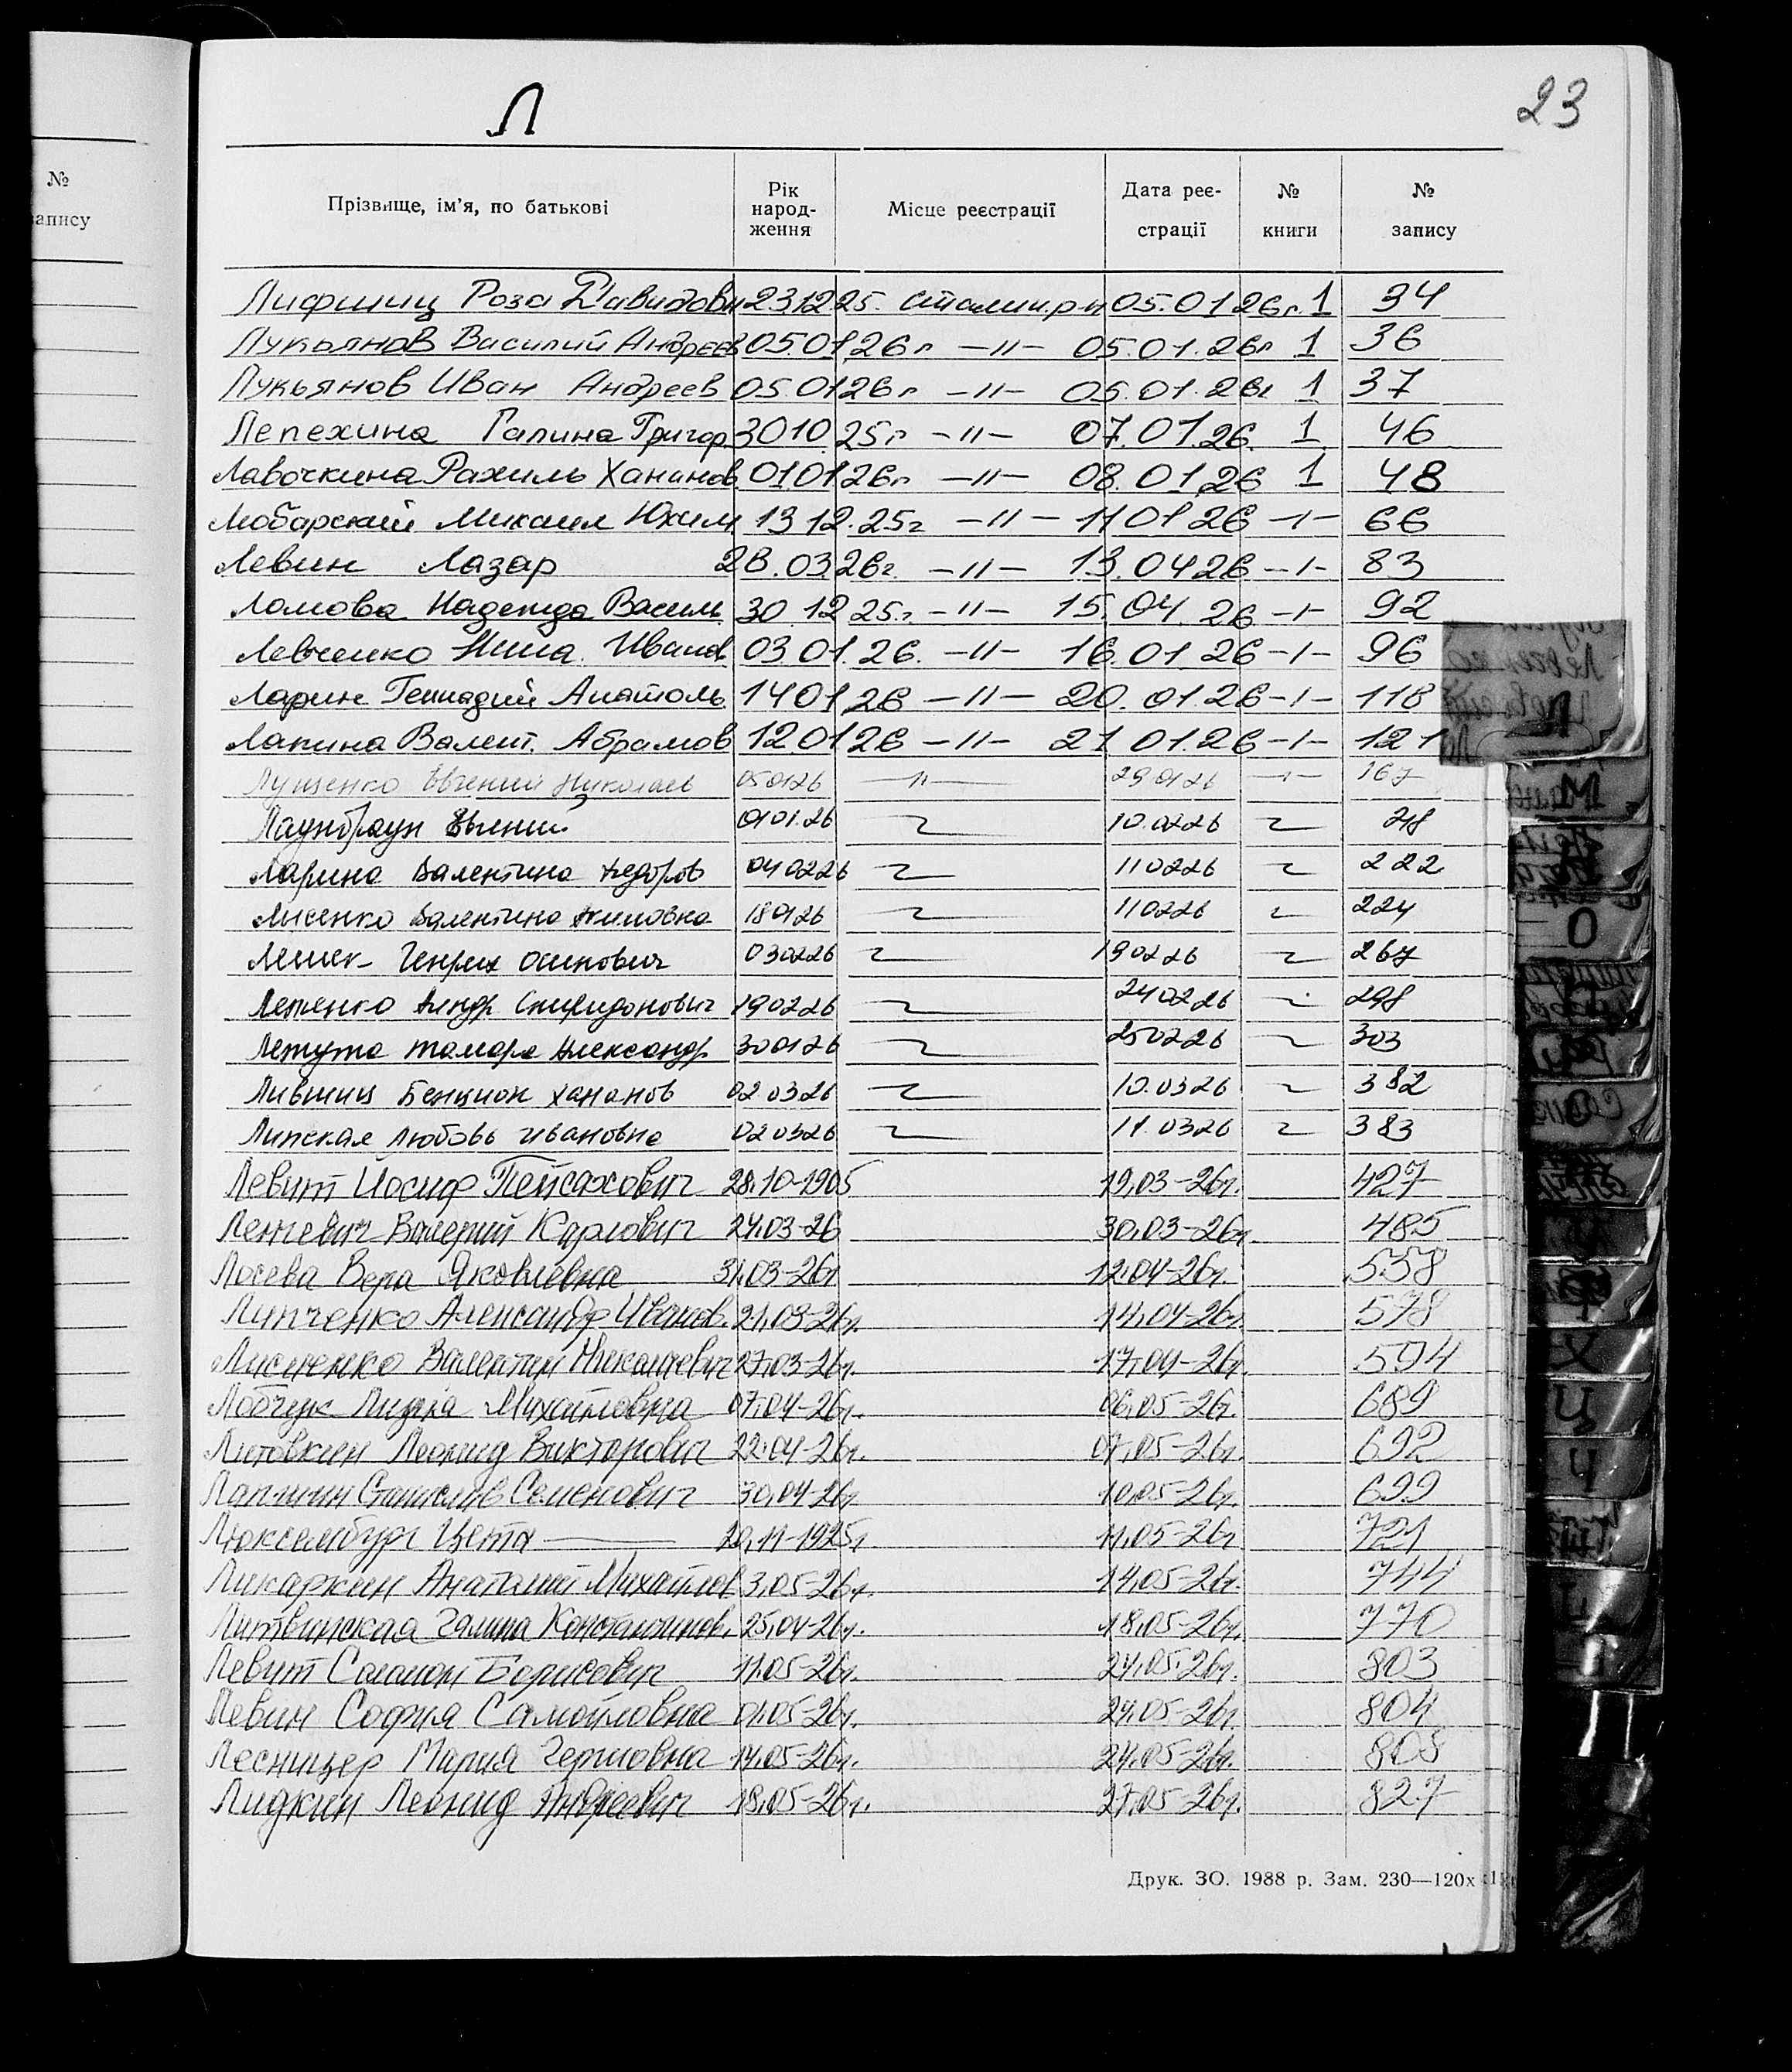 Л
23
№
запису
Прізвище, ім'я, по батькові Рік народження Місце реєстрації Дата реєстрації № книги № запису
Лифшиц Роза Давидовн 23 12 25. Сталин.р-н 05.01 26г. 1 34
Лукьянов Василий Андреев 05.01 26г -"- 05.01.26г 1 36
Лукьянов Иван Андреев 05.01 26г -"- 05.01.26г 1 37
Лепехина Галина Григор. 30 10 25г -"- 07.01.26. 1 46
Лавочкина Рахиль Хананов. 01 01 26г. -"- 08.01.26 1 48
Любарский Михаил Юхим 13 12.25г -"- 11 01 26 -1- 66
Левин Лазар 28.03 26г. -"- 13.04 26 -1- 83
Ломова Надежда Василь. 30 12 25.г -"- 15.04.26 -1- 92
Левченко Нина Иванов 03 01.26. -"- 16.01.26 -1- 96
Ларин Геннадий Анатоль. 14 01 26 -"- 20.01.26 -1- 118
Лапина Валент. Абрамов 12 01 26 -"- 21 01.26 -1- 121
Лущенко Евгений Николаев 05 01 26 -"- 29 01 26 -"- 167
Лаунбраун 01 01.26 10.02 26 218
Ларина Валентина Федоров 04 02 26 11 02 26 222
Лисенко Валентина Акимовна 18 01 26 11 02 26 224
Генрих Осипович 03 02 26 19 02 26 267
Спиридонович 19 02 26 24 02 26 298
Летута Тамара Александр 30 01 26 25 02 26 303
Лившиц Бенцион Хананов 02 03 26 10.03 26 382
Липская Любовь Ивановна 02 03 26 11.03 26 383
Левит Иосиф Пейсахович 28.10-1905 19.03-26г. 427
Ленкевич Валерий Карлович 24.03-26 30.03-26г. 485
Лосева Вера Яковлевна 31.03-26г 12.04-26г. 558
Липченко Александр Иванов. 21.03-26г. 14.04-26г. 578
Валентин Николаевич 27.03-26г. 17.04-26г. 594
Лобчук Лидия Михайловна 07.04-26г. 06.05-26г. 689
Литовкин Леонид Викторович 22.04-26г. 07.05-26г. 692
Лапшин Станислав Семенович 30.04-26г. 10.05-26г. 699
Люксембург Цента 20.11-1925г 11.05-26г 721
Ликаркин Анатолий Михайлов 3.05-26г. 14.05-26г. 744
Литвинская Галина Константинов. 25.04-26г. 18.05-26г. 770
Левит Соломон Борисович 11.05-26г. 24.05-26г. 803
Левин София Самойловна 01.05-26г. 24.05-26г. 804
Лесницер Мария Гершовна 14.05-26г. 24.05-26г. 808
Лидкин Леонид Андреевич 18.05-26г. 27.05-26г. 827
Л
М
О
О
Х
Ц
Ч
Друк. ЗО. 1988 р. Зам. 230—120х